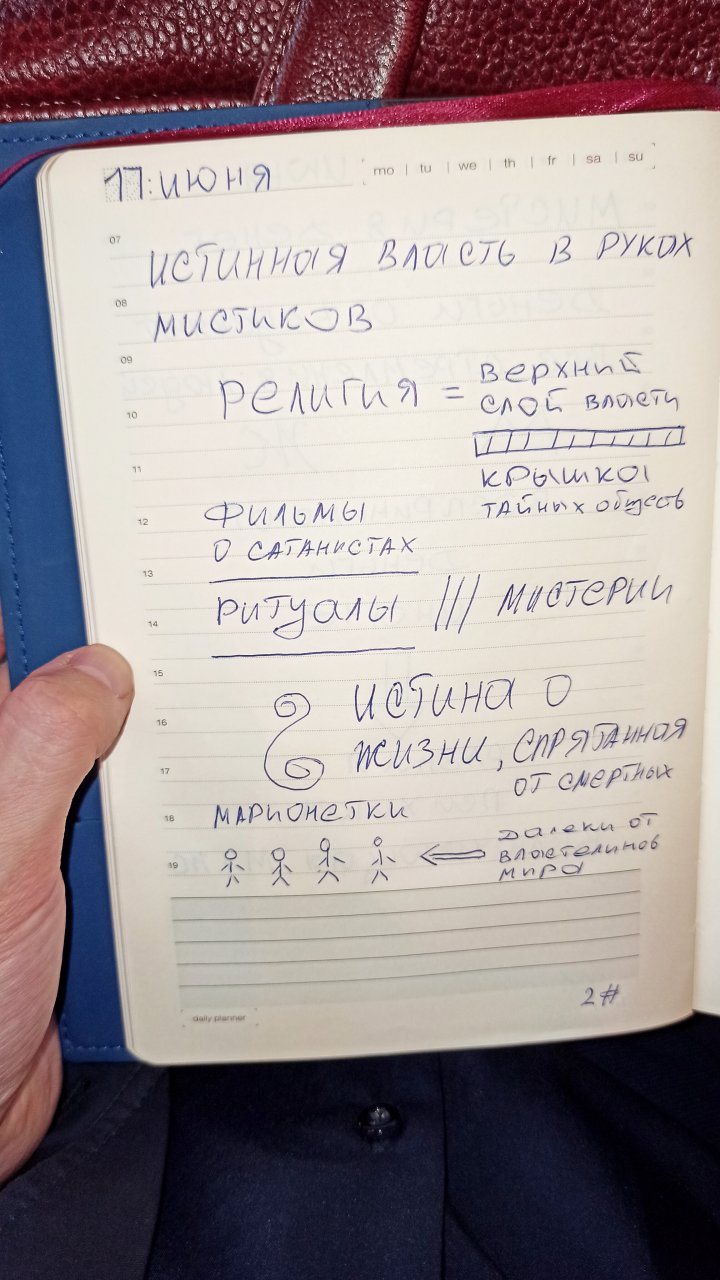 17: ИЮНЯ
mo | tu | we | th | fr | sa | su
07
ИСТИННАЯ ВЛАСТЬ В РУКАХ
08
МИСТИКОВ
09
РЕЛИГИЯ = ВЕРХНИЙ
СЛОЙ ВЛАСТИ
10
11
КРЫШКА
ТАЙНЫХ ОБЩЕСТВ
12
ФИЛЬМЫ
О САТАНИСТАХ
13
РИТУАЛЫ /// МИСТЕРИИ
14
15
ИСТИНА О
16
ЖИЗНИ, СПРЯТАННАЯ
ОТ СМЕРТНЫХ
17
18
МАРИОНЕТКИ
19
ДАЛЕКИ ОТ
ВЛАСТЕЛИНОВ
МИРА
2#
daily planner